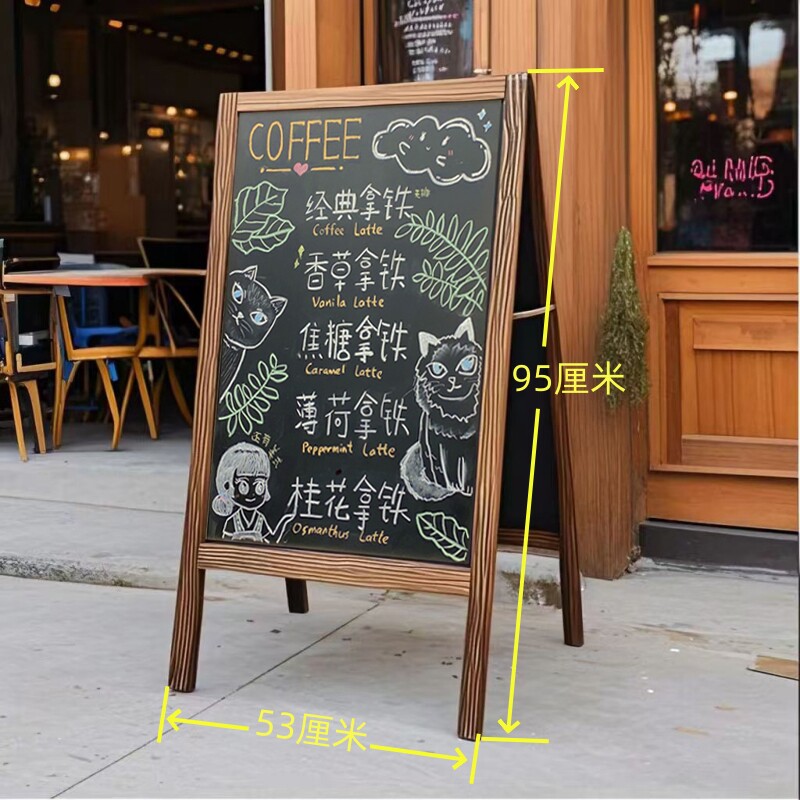 COFFEE
经典拿铁
Coffee Latte
香草拿铁
Vanila Latte
焦糖拿铁
Caramel Latte
薄荷拿铁
Peppermint Latte
桂花拿铁
Osmanthus Latte
95厘米
53厘米